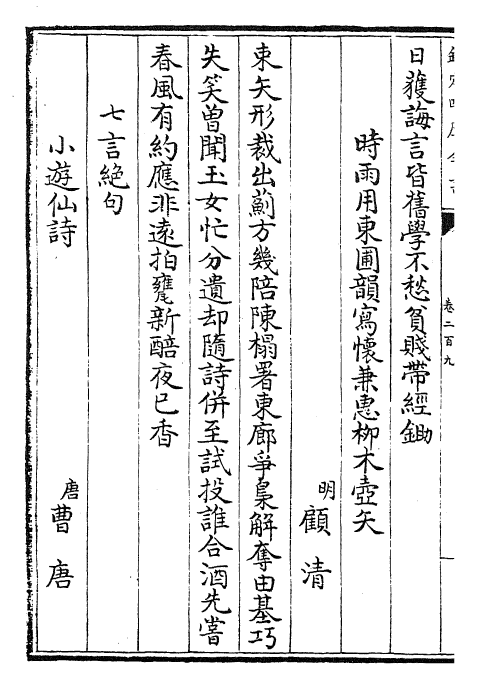 欽定四庫全書
卷二百九
日獲誨言皆舊學不愁貧賤帶經鋤
時雨用東圃韻寫懷兼惠柳木壺矢
明顧清
束矢形裁出薊方幾陪陳榻署東廊爭梟解奪由基巧
失笑曾聞玉女忙分遺却隨詩併至試投誰合酒先嘗
春風有約應非遠拍甕新醅夜已香
七言絶句
小遊仙詩
唐曹唐